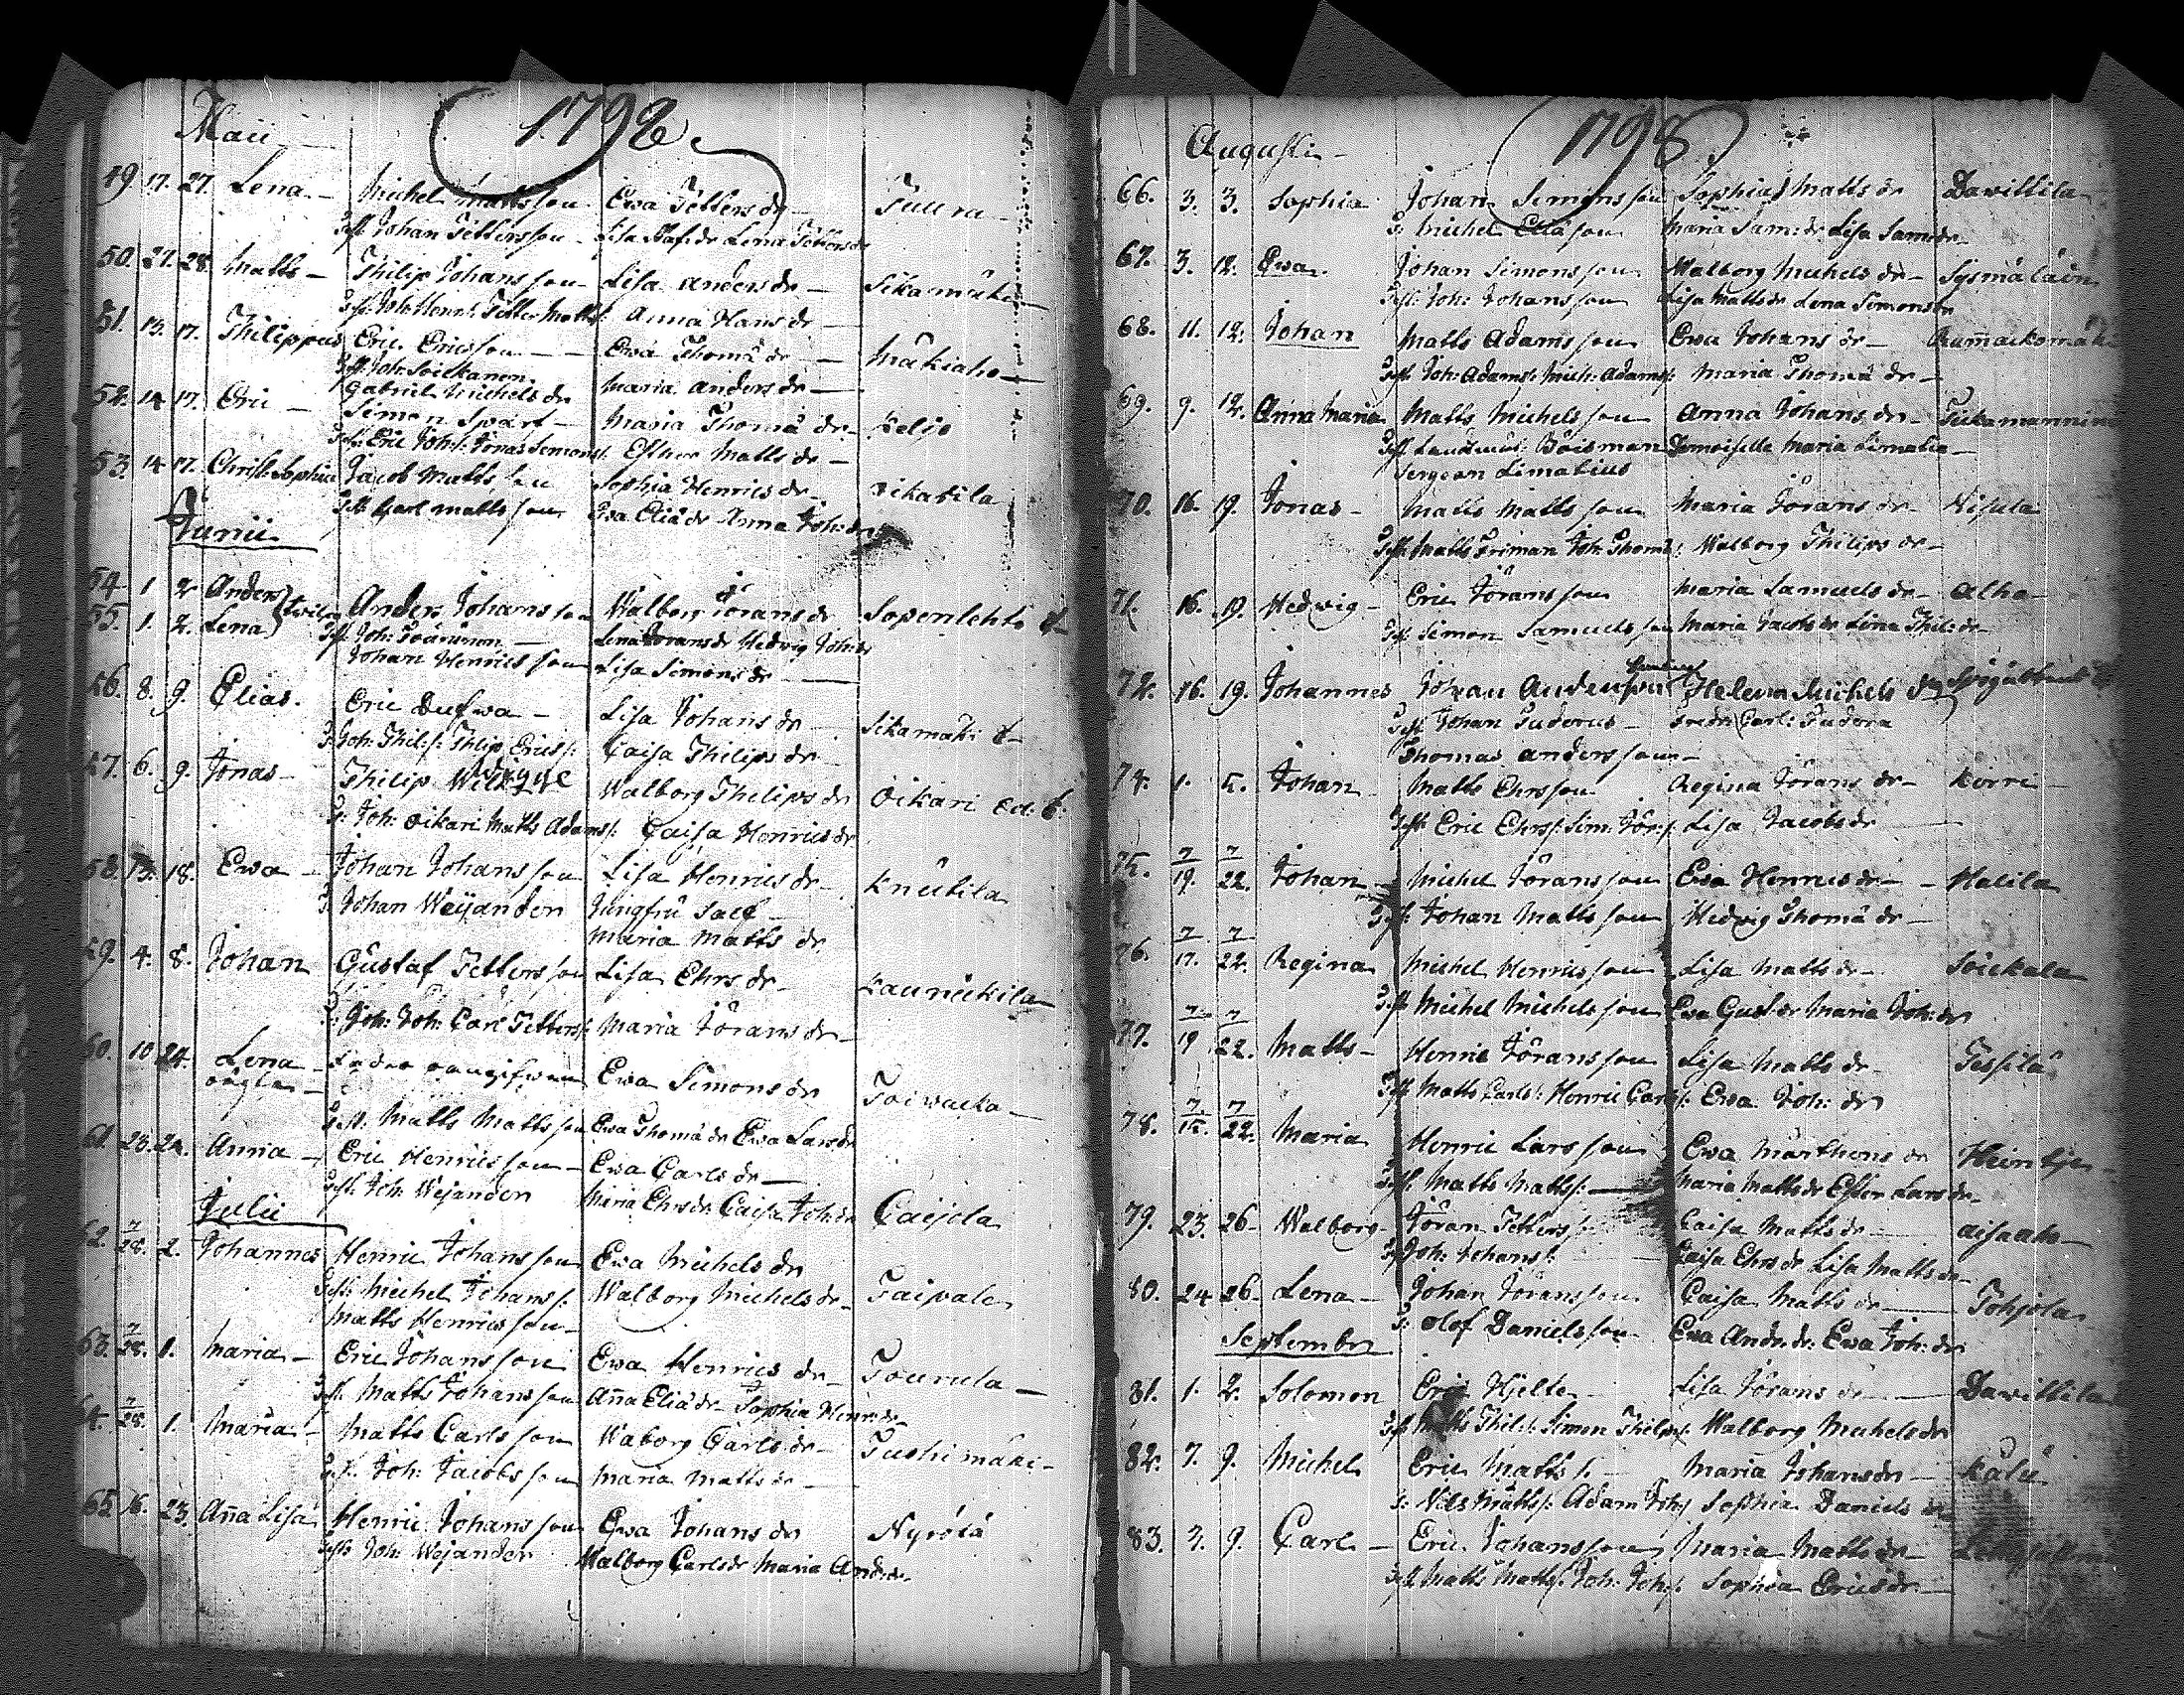 Maii
1798
49. 17. 27. Lena — Michel Mattsson Ewa Petters dr Puura
Test Johan Pettersson Lisa Staf: dr Lena Petters dr
50. 27. 28. Matts — Philip Johansson Lisa Anders dr — Sikamäki
Test. Joh: Henr: Petter Matts: Anna Hans dr —
51. 13. 17. Philippus Eric Ericsson — Ewa Thomä dr — Mäkiaho
Test Joh: Soikkanen. Maria Anders dr —
Gabriel Michels dr
52. 14 17. Eric — Simon Spart — Maria Thomä dr — Keljo
Test: Eric Joh: s: Jonas Simons: Esther Matts dr —
53. 14 17. Christ: Sophia Jacob Mattsson Sophia Henrics dr — Oikarila
Test Carl Mattsson Ewa Eliä dr Anna Joh: dr
Junii
54 1 2 Anders } Anders Johansson Walborg Jörans dr Sopenlehto
55. 1. 2. Lena Test Joh: Lena Jorans dr Hedwig Joh: dr
Johan Henricsson Lisa Simons dr —
56. 8. 9. Elias. Eric Dufwa — Lisa Johans dr — Sikamäki
T: Joh: Phil: s: Philip Erics s: Caisa Philips dr —
57. 6. 9. Jonas — Philip Walborg Philips dr Oikari
T: Joh: Oikari Matts Adams: Caisa Henrics dr
58. 13. 18. Ewa — Johan Johansson Lisa Henrics dr — Knutila
T: Johan Weijanden Jungfru
Maria Matts dr
59. 4. 8. Johan Gustaf Pettersson Lisa Ehrs dr — Kaunickila
T: Joh: Joh: Carl Petters: Maria Jörans dr —
60. 10 24. Lena oägta — Ewa Simons dr Toiwacka —
Test. Matts Mattsson Ewa Thomä dr Ewa Lars dr
61. 23. 24. Anna — Eric Henricsson — Ewa Carls dr — Caijola
Test. Joh: Weijanden Maria Ehrs dr Caisa Joh: dr
Julii
62. 7/28. 2. Johannes Henric Johansson Ewa Michels dr Taipale
Test: Michel Johans s: Walborg Michels dr —
Matts Henricsson —
63. 7/28. 1. Maria — Eric Johansson Ewa Henrics dr — Tourula —
Test. Matts Johansson Aña Eliä dr — Sophia Henr: dr —
64. 7/28. 1. Maria — Matts Carlsson Waborg Carls dr — Puthimäki —
Test. Joh: Jacobsson Maria Matts dr —
65 16. 23. Aña Lisa Henric Johansson Ewa Johans dr Nyrölä
Test: Joh: Wejanden Walborg Carls dr Maria And: dr
Augusti —
1798
66. 3. 3. Sophia Johan Simonsson Sophia Matts dr Dawittila
T: Michel Eliasson Maria Sam: dr Lisa Sam: dr —
67. 3. 12. Ewa. Johan Simonsson Walborg Michels dr — Sysmäläin
Test: Joh: Johansson Lisa Matts dr Lena Simons dr
68. 11. 12. Johan Matts Adamsson Ewa Johans dr —
Test Joh: Adams: Mich: Adams: Maria Thomä dr —
69. 9. 12. Anna Maria Matts Michelsson Anna Johans dr —
Test Boisman Demoiselle Maria Limatia —
Sergean Limatius
70. 16. 19. Jonas — Matts Mattsson Maria Jörans dr — Nisula
Test. Matts Friman Joh: Thomä: Walborg Philips dr —
71. 16. 19. Hedwig — Eric Jöransson Maria Samuels dr — Alho —
Test. Simon Samuelsson Maria Jacobs dr Lina Phil: dr —
72. 16. 19. Johannes Johan Andersson Helena Michels dr
Test Johan Tuderus — Fredr: Carl: Tudera
Thomas Andersson —
74. 1. 5. Johan Matts Ehrsson Regina Jörans dr — Körri —
Test. Eric Ehrs: Sim: Jör: s: Lisa Jacobs dr
75. 7/19. 7/22. Johan — Michel Jöransson Ewa Henrics dr — Halila
Test: Johan Mattsson Hedwig Thomä dr —
76. 7/17. 7/22. Regina Michel Henricsson Lisa Matts dr — Soickala
Test Michel Michelsson Ewa Gust: dr Maria Joh: dr
77. 7/19 7/22. Matts — Henric Jöransson Lisa Matts dr
Test Matts Carls: Henric Carls: Ewa Joh: dr
78. 7/15. 7/22. Maria Henric Larsson Ewa Marthens dr
Test. Matts Matts: — Maria Matts dr Ester Lars dr —
79. 23. 26 — Walborg — Jöran Petters s: Caisa Matts dr —
Test Joh: Johans: Caisa Ehrs dr Lisa Matts dr —
80. 24 26. Lena — Johan Jöransson Caisa Matts dr — Pohjola
T: Olof Danielsson Ewa Andr: dr: Ewa Joh: dr
September
81. 1. 2. Solomon Eric Hjelte — Lisa Jörans dr — Dawittila
Test Matts Phil: s: Simon Philips: Walborg Michels dr
82. 7. 9. Michel Eric Matts s: — Maria Johans dr — Kalu
T: Nils Matts: Adam Joh: s Sophia Daniels dr
83. 2. 9. Carl — Eric Johansson Maria Matts dr —
Test Matts Matts: Joh: Joh: s: Sophia Erics dr —